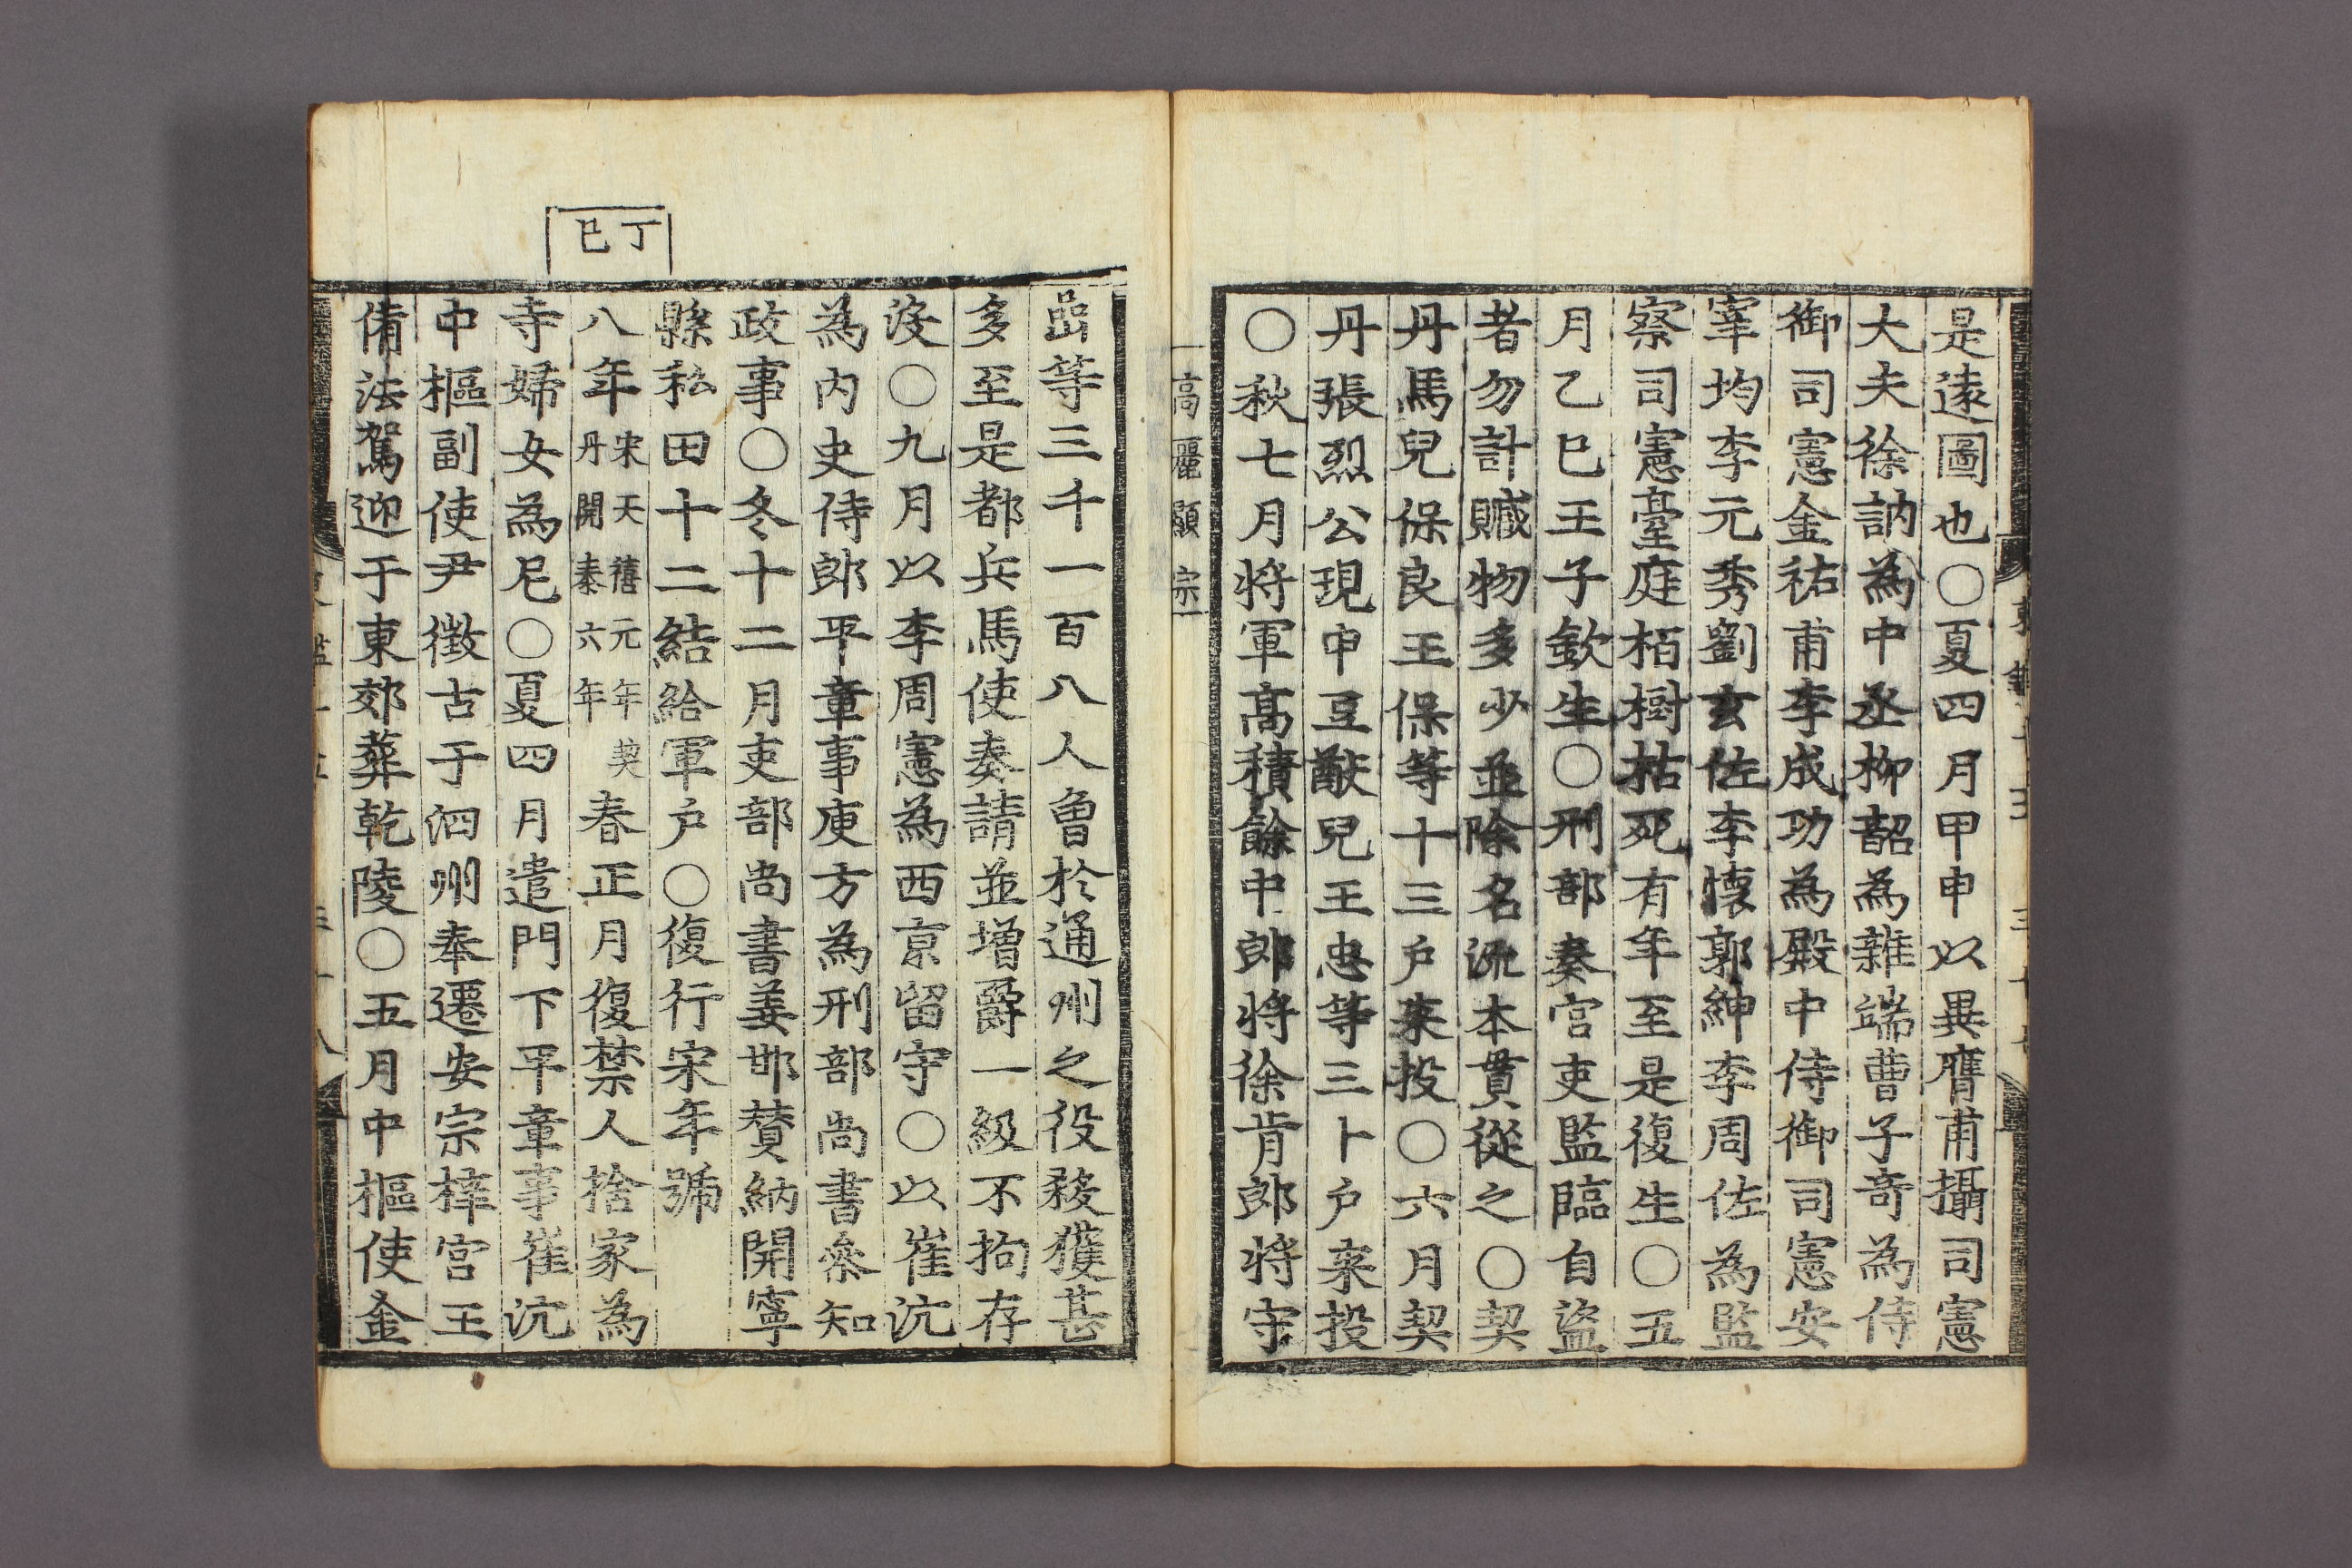 是遠圖也○夏四月甲申以異膺甫攝司憲
大夫徐訥為中丞柳韶為雜端曹子奇為侍
御司憲金祐甫李成功為殿中侍御司憲安
宰均李元秀劉玄佐李懐郭紳李周佐為監
察司憲臺庭栢樹枯死有年至是復生○五
月乙巳王子欽生○刑部奏官吏監臨自盜
者勿計贓物多少並除名流本貫從之○契
丹馬兒保良王保等十三户来投○六月契
丹張烈公現申豆猷兒王忠等三十户来投
○秋七月將軍高積餘中郎将徐肯郎将守
高麗顯宗
嵒等三千一百八人曾於通州之役殺獲甚
多至是都兵馬使奏請並增爵一級不拘存
沒○九月以李周憲為西京留守○以崔沆
為内史侍郎平章事庾方為刑部尚書參知
政事○冬十二月吏部尚書姜邯賛納開寧
縣私田十二結給軍户○復行宋年號
丁巳
八年宋天禧元年契丹開泰六年春正月復禁人捨家為
寺婦女為尼○夏四月遣門下平章事崔沆
中樞副使尹徵古于泗州奉遷安宗梓宮王
備法駕迎于東郊葬乾陵○五月中樞使金